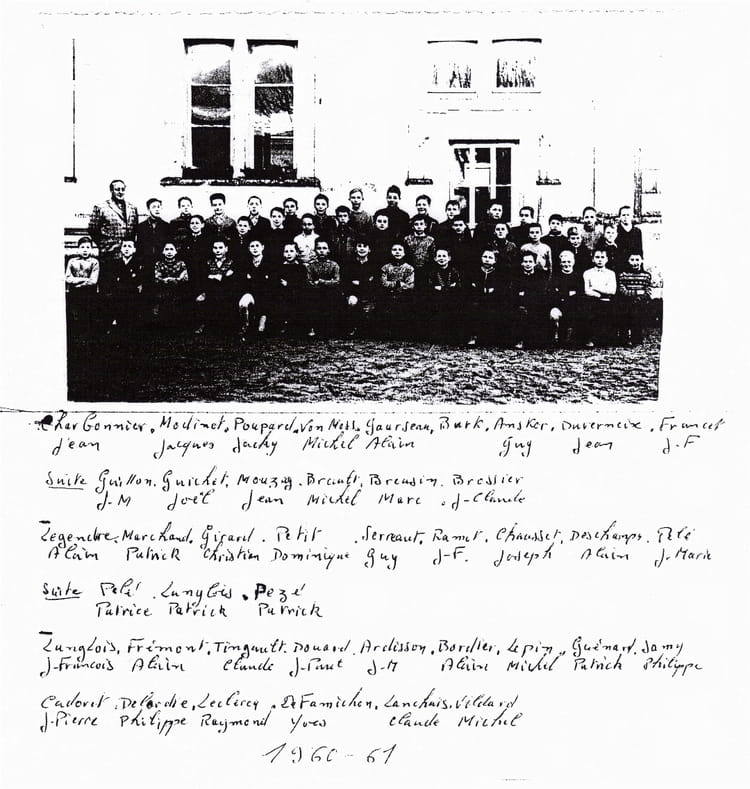 Charbonnier, Modinet, Poupard, Von Ness, Gaurseau, Burk, Ansker, Duverneix, Francet
Jean Jacques Jacky Michel Alain Guy Jean J-F
Suite Guillon, Guichet, Mouzay, Brault, Breusin, Brossier
J-M Joël Jean Michel Marc J-Claude
Legendre, Marchand, Girard, Petit, Serreaut, Ramet, Chausset, Deschamps, Pelé
Alain Patrick Christian Dominique Guy J-F. Joseph Alain J-Marie
Suite Pelé, Langlois, Pezé
Patrice Patrick Patrick
Langlois, Frémont, Tingault, Douard, Ardisson, Bordier, Lepin, Guénard, Jamy
J-François Alain Claude J-Paul J-M Alain Michel Patrick Philippe
Cadoret, Delordie, Leclercq, DeFamichon, Lanchais, Vildard
J-Pierre Philippe Raymond Yves Claude Michel
1960-61